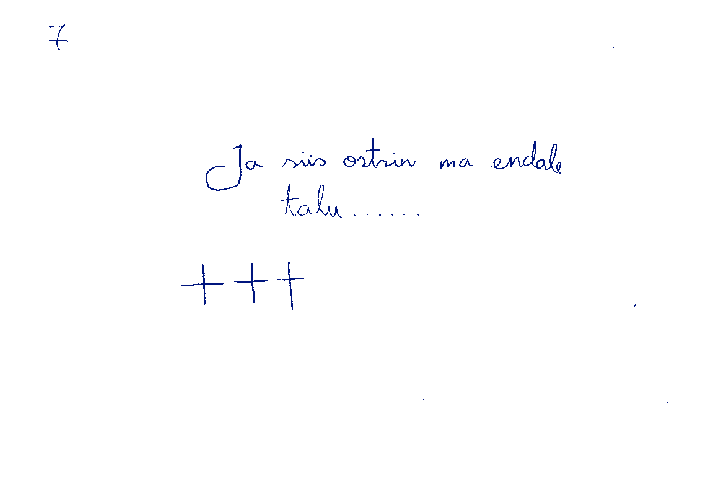 7
Ja siis ostsin ma endale
talu......
+++